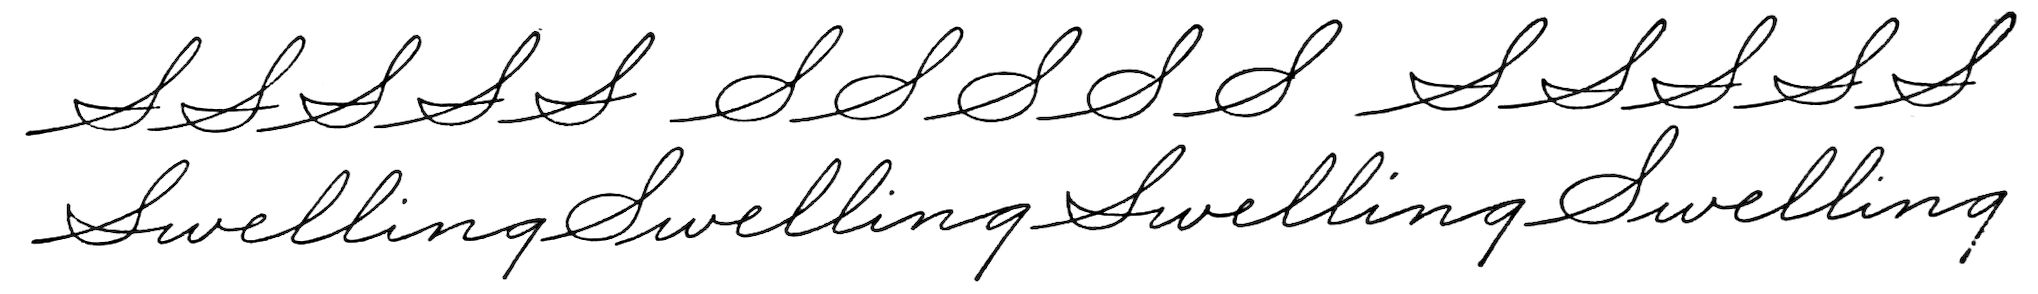 S S S S S S S S S S S S S S S
Swelling Swelling Swelling Swelling